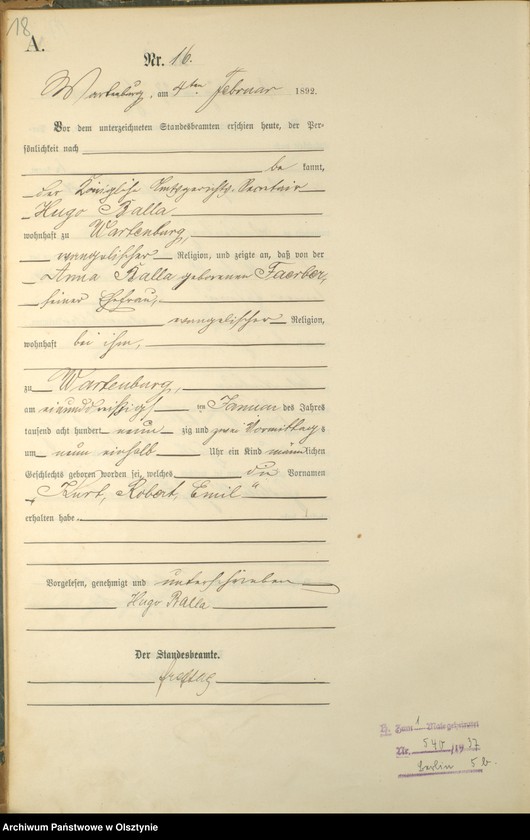 18
A.
Nr. 16.
Wartenburg, am 4ten Februar 1892.
Vor dem unterzeichneten Standesbeamten erschien heute, der Per-
sönlichkeit nach
be kannt,
der Königliche Amtsgerichts-Secretair
Hugo Balla
wohnhaft zu Wartenburg,
evangelischer Religion, und zeigte an, daß von der
Anna Balla geborenen Faerber,
seiner Ehefrau,
evangelischer Religion,
wohnhaft bei ihm,
zu Wartenburg,
am einunddreißigsten Januar des Jahres
tausend acht hundert neun zig und zwei Vormittags
um neun einhalb Uhr ein Kind männlichen
Geschlechts geboren worden sei, welches die Vornamen
„Kurt, Robert, Emil“
erhalten habe.
Vorgelesen, genehmigt und unterschrieben
Hugo Balla
Der Standesbeamte.
1 Male geheiratet
Nr. 540 /1937
Berlin 5b.
Archiwum Państwowe w Olsztynie